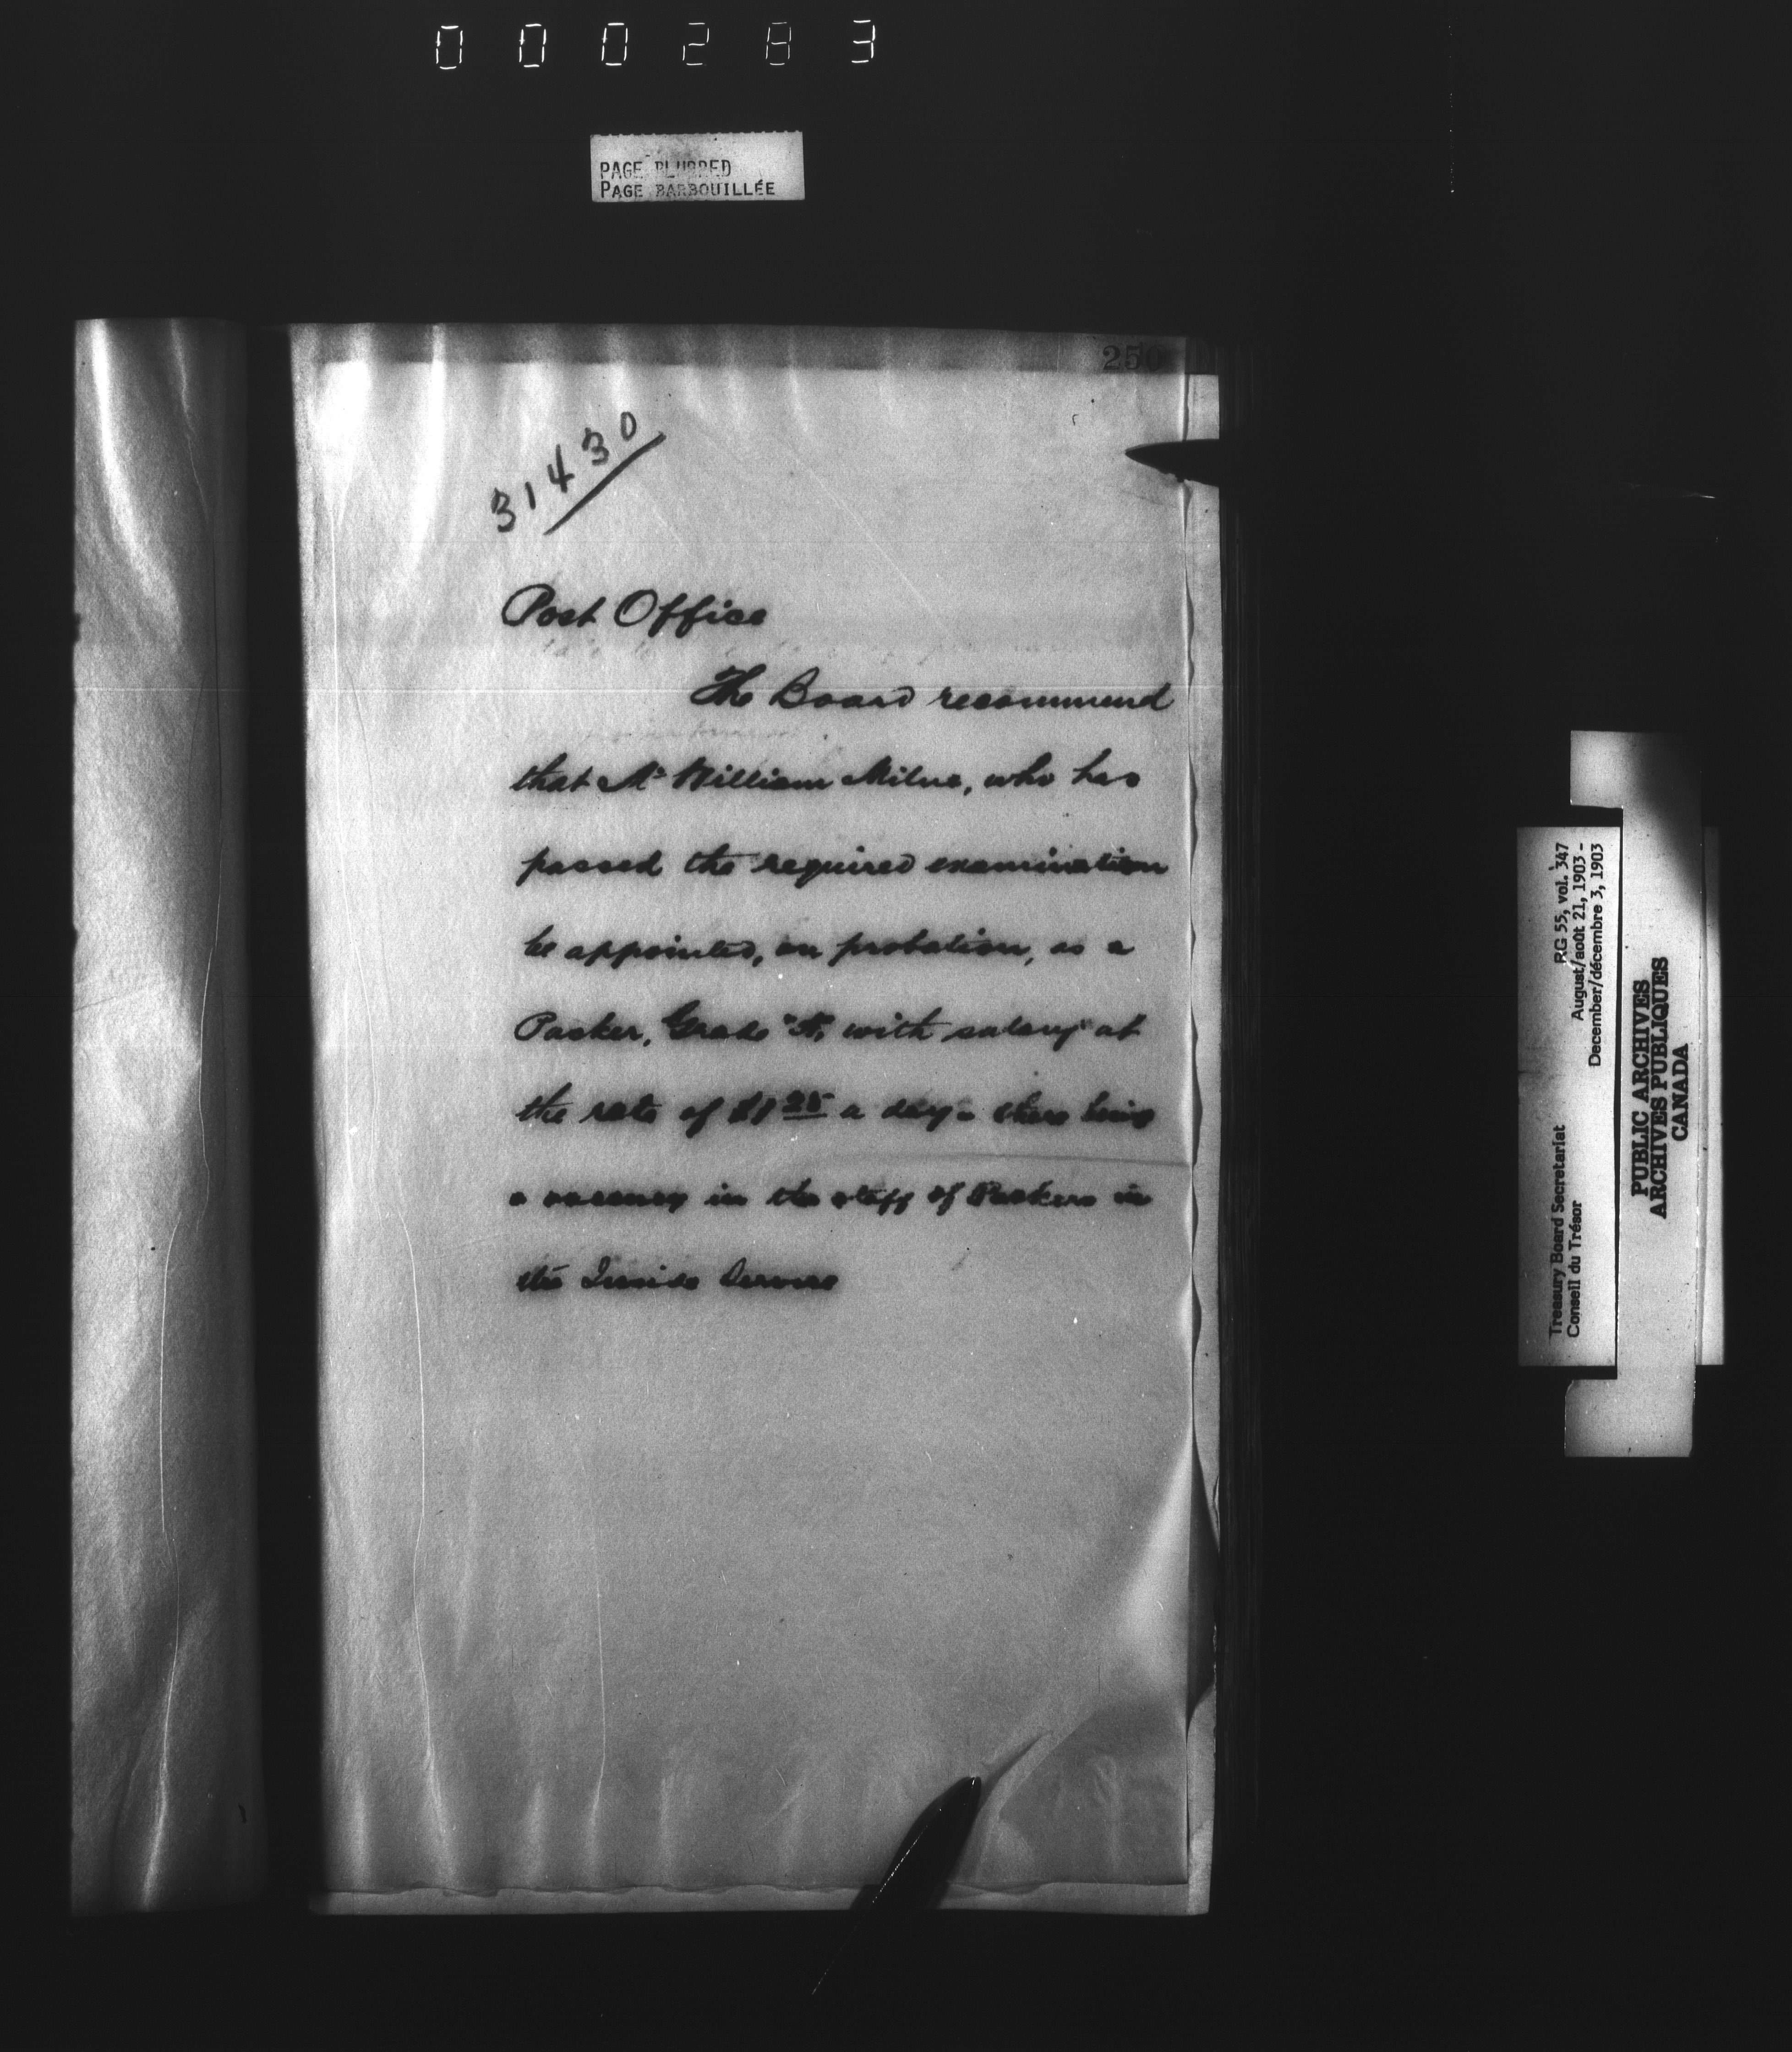 000283
PAGE BLURRED
PAGE BARBOUILLÉE
250
31430
Post Office
The Board recommend
that Mr William Milne, who has
passed the required examination
be appointed, on probation, as a
Packer, Grade "A", with salary at
the rate of $1.25 a day - there being
a vacancy in the staff of Packers in
the Inside Service
Treasury Board Secretariat RG 55, vol. 347
Conseil du Trésor August/août 21, 1903 -
December/décembre 3, 1903
PUBLIC ARCHIVES
ARCHIVES PUBLIQUES
CANADA